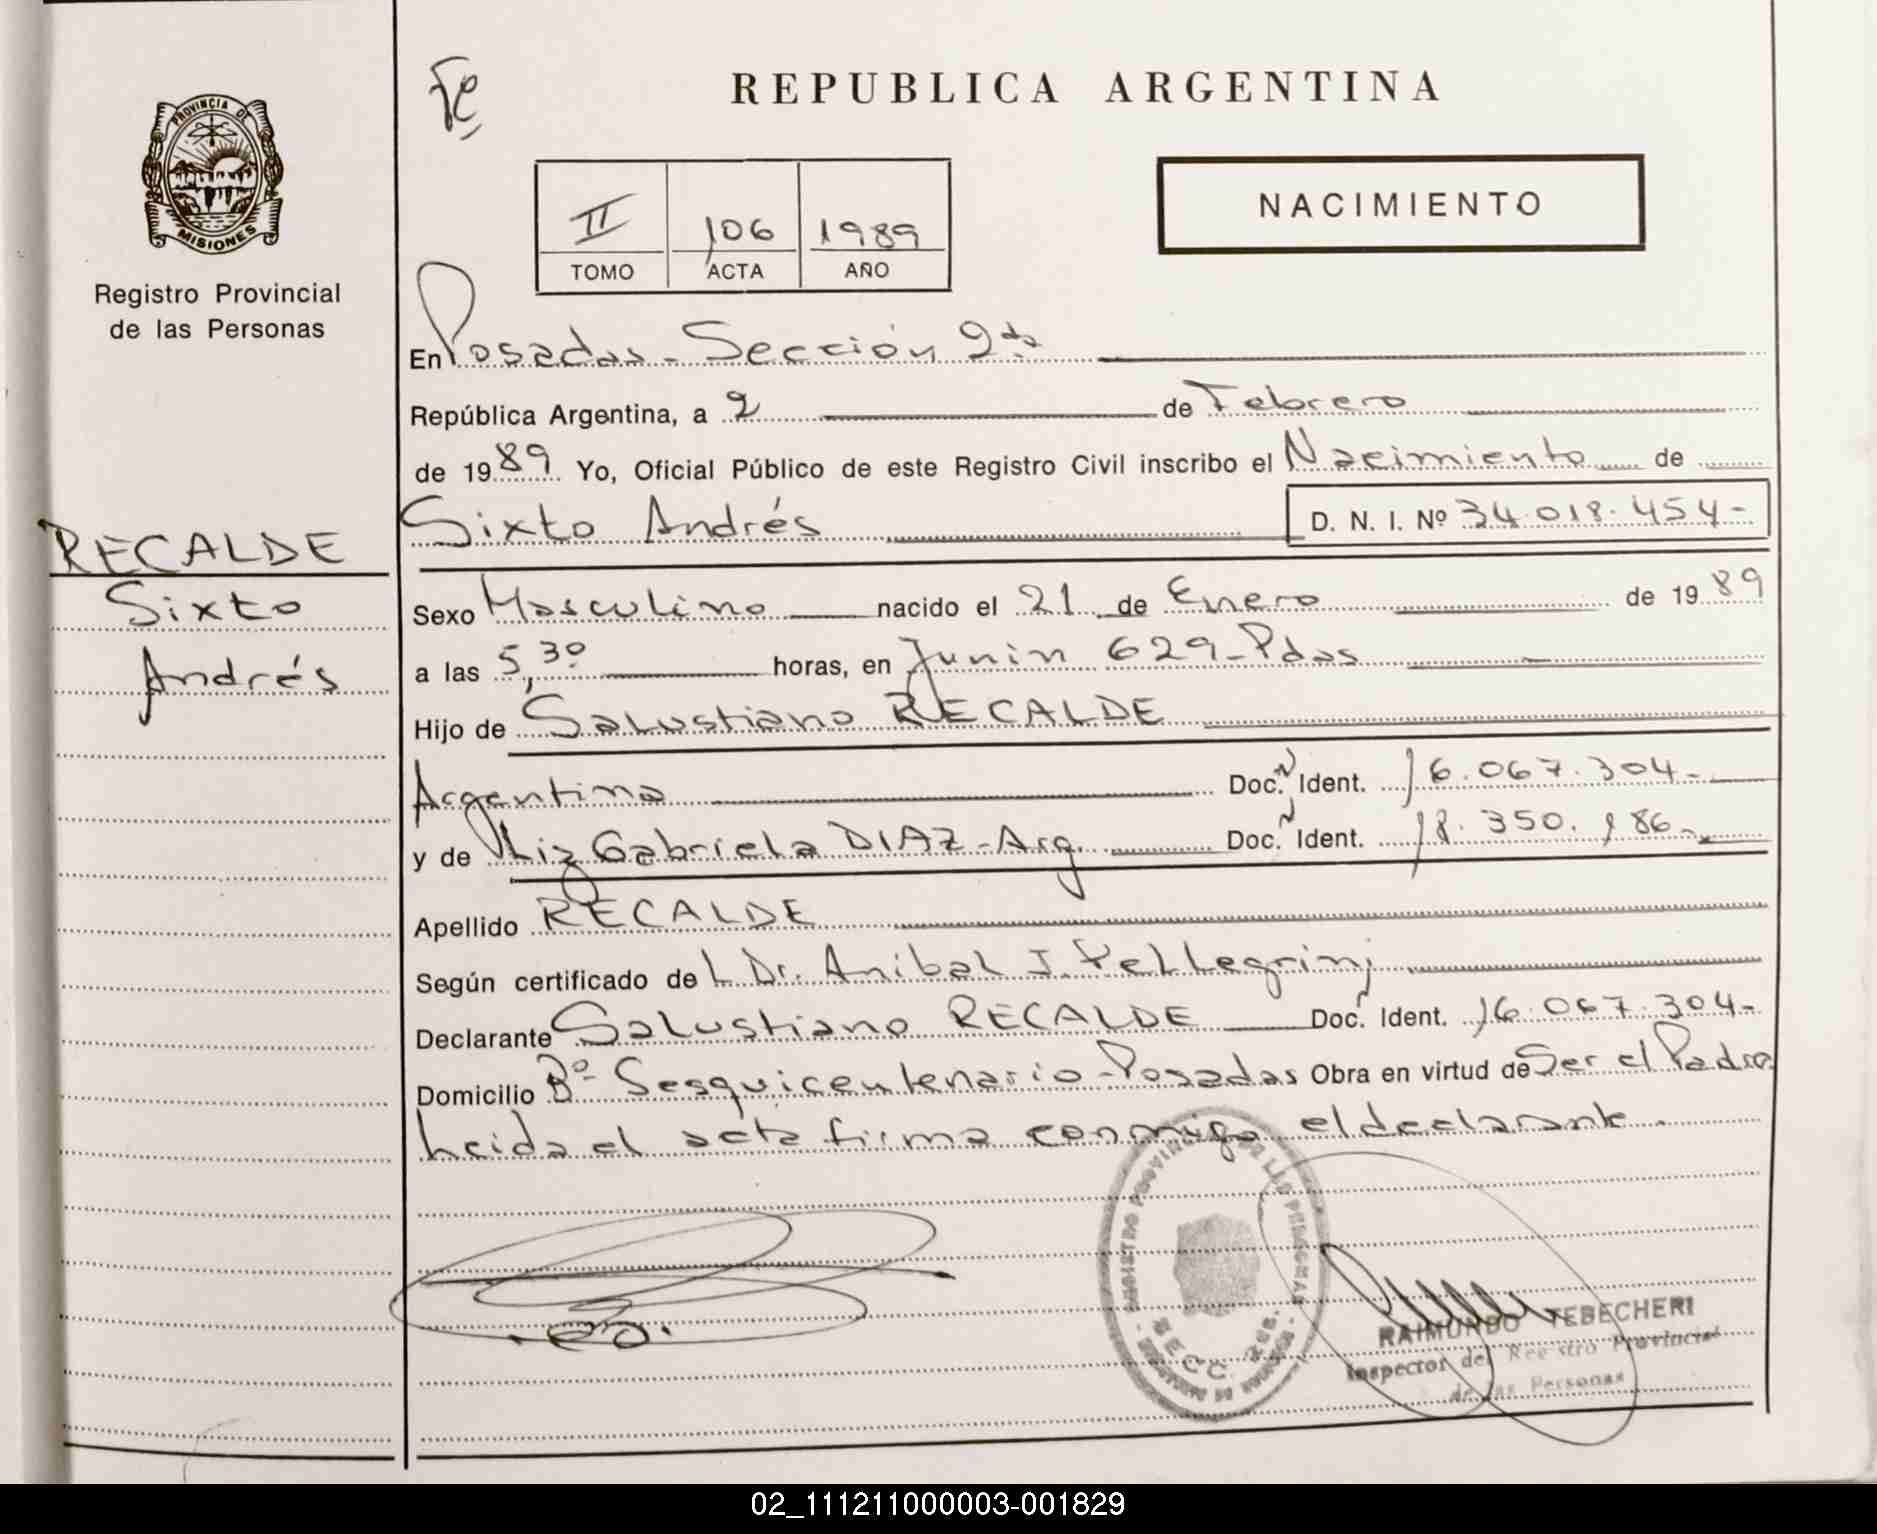 PROVINCIA DE
MISIONES
Registro Provincial
de las Personas
RECALDE
Sixto
Andrés
REPUBLICA ARGENTINA
II 106 1989
TOMO ACTA AÑO
NACIMIENTO
En Posadas - Sección 2da
República Argentina, a 2 de Febrero
de 1989 Yo, Oficial Público de este Registro Civil inscribo el Nacimiento de
Sixto Andrés D. N. I. Nº 34.018.454-
Sexo Masculino nacido el 21 de Enero de 1989
a las 5,30 horas, en Junin 629-Pdas
Hijo de Salustiano RECALDE
Argentino Doc. Ident. 16.067.304-
y de Liz Gabriela DIAZ-Arg. Doc. Ident. 18.350.186-
Apellido RECALDE
Según certificado del Dr. Anibal J. Pellegrini
Declarante Salustiano RECALDE Doc. Ident. 16.067.304-
Domicilio Bº- Sesquicentenario-Posadas Obra en virtud de Ser el Padre
Leida el acta firma conmigo el declarante.
RAIMUNDO TEBECHERI
Inspector del Registro Provincial
de las Personas
02_111211000003-001829